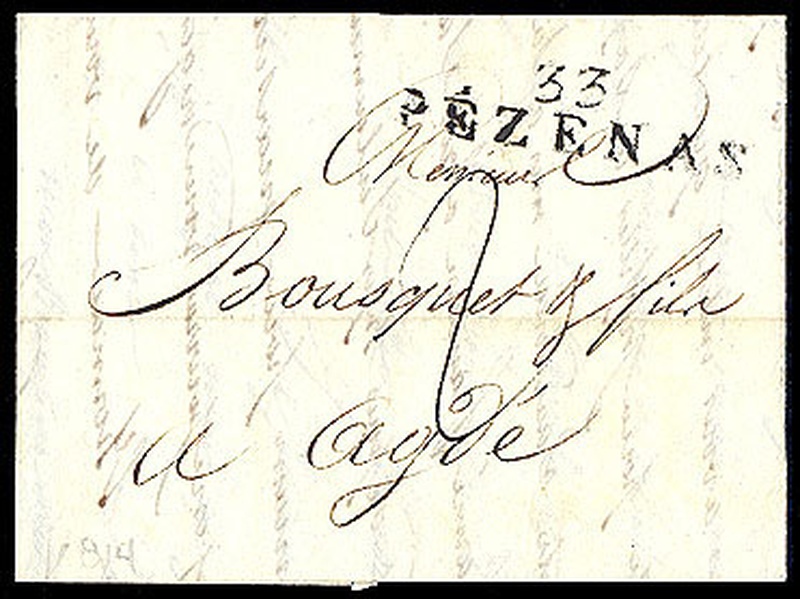 33
PÉZENAS
Messieurs
Bousquet & fils
2
a agde
1814